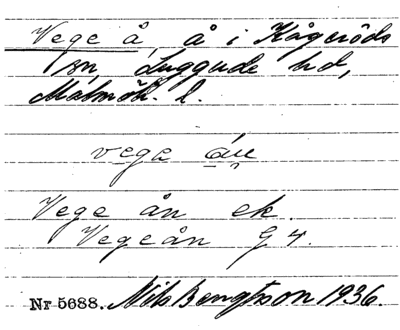 Vege å, å i Kågeröds
sn, Luggude hd,
Malmöh. l.
vega ån
Vege ån ek.
Vegeån G 4.
Nr 5688. Nils Bengtsson 1936.